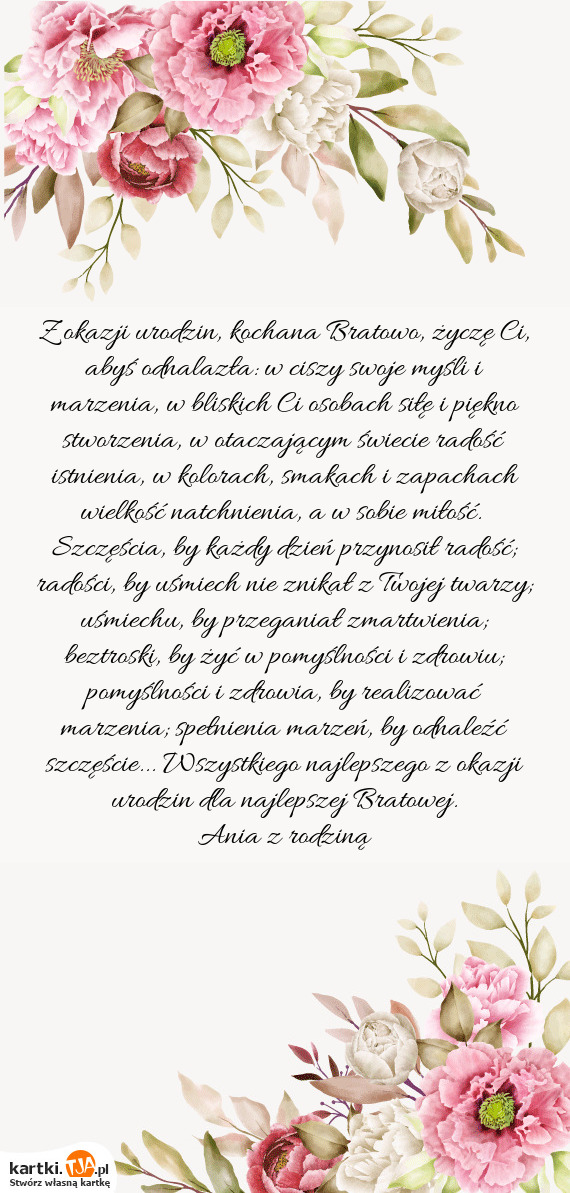 Z okazji urodzin, kochana Bratowo, życzę Ci,
abyś odnalazła: w ciszy swoje myśli i
marzenia, w bliskich Ci osobach siłę i piękno
stworzenia, w otaczającym świecie radość
istnienia, w kolorach, smakach i zapachach
wielkość natchnienia, a w sobie miłość.
Szczęścia, by każdy dzień przynosił radość;
radości, by uśmiech nie znikał z Twojej twarzy;
uśmiechu, by przeganiał zmartwienia;
beztroski, by żyć w pomyślności i zdrowiu;
pomyślności i zdrowia, by realizować
marzenia; spełnienia marzeń, by odnaleźć
szczęście... Wszystkiego najlepszego z okazji
urodzin dla najlepszej Bratowej.
Ania z rodziną
kartki.TJA.pl
Stwórz własną kartkę